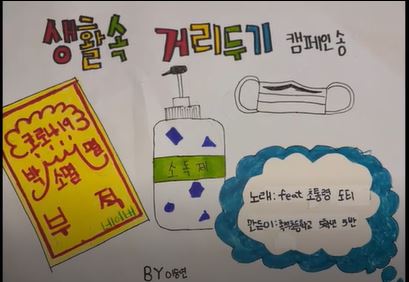 생활 속 거리두기 캠페인송
코로나19
박 멸
소멸
부 적
소독제
노래: feat 초통령 도티
만든이: 초등학교 5학년 5반
BY 이동연